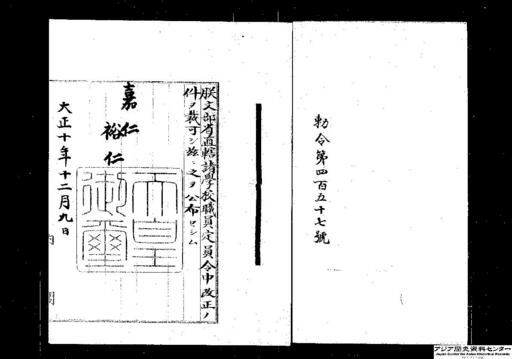 勅令第四百五十七號
朕文部省直轄諸學校職員定員令中改正ノ
件ヲ裁可シ茲ニ之ヲ公布セシム
嘉仁
裕仁
天皇
御璽
大正十年十二月九日
内閣
アジア歴史資料センター
Japan Center for Asian Historical Records